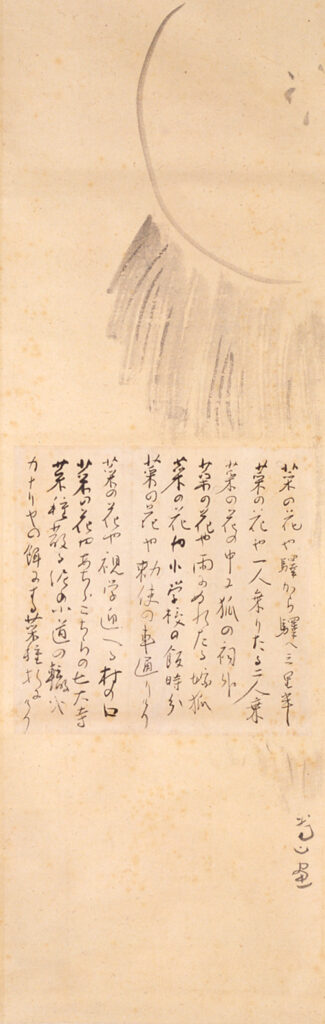 菜の花や驛から驛へ三里半
菜の花や一人乗りたる二人乗
菜の花の中に狐の祠かな
菜の花や雨にぬれたる嫁狐
菜の花や小学校の飯時分
菜の花や勅使の車通りけり
菜の花や視学迎へる村の口
菜の花やあちらこちらの七大寺
菜種散る
小道の轍かな
カナリヤの餌にする菜種かな